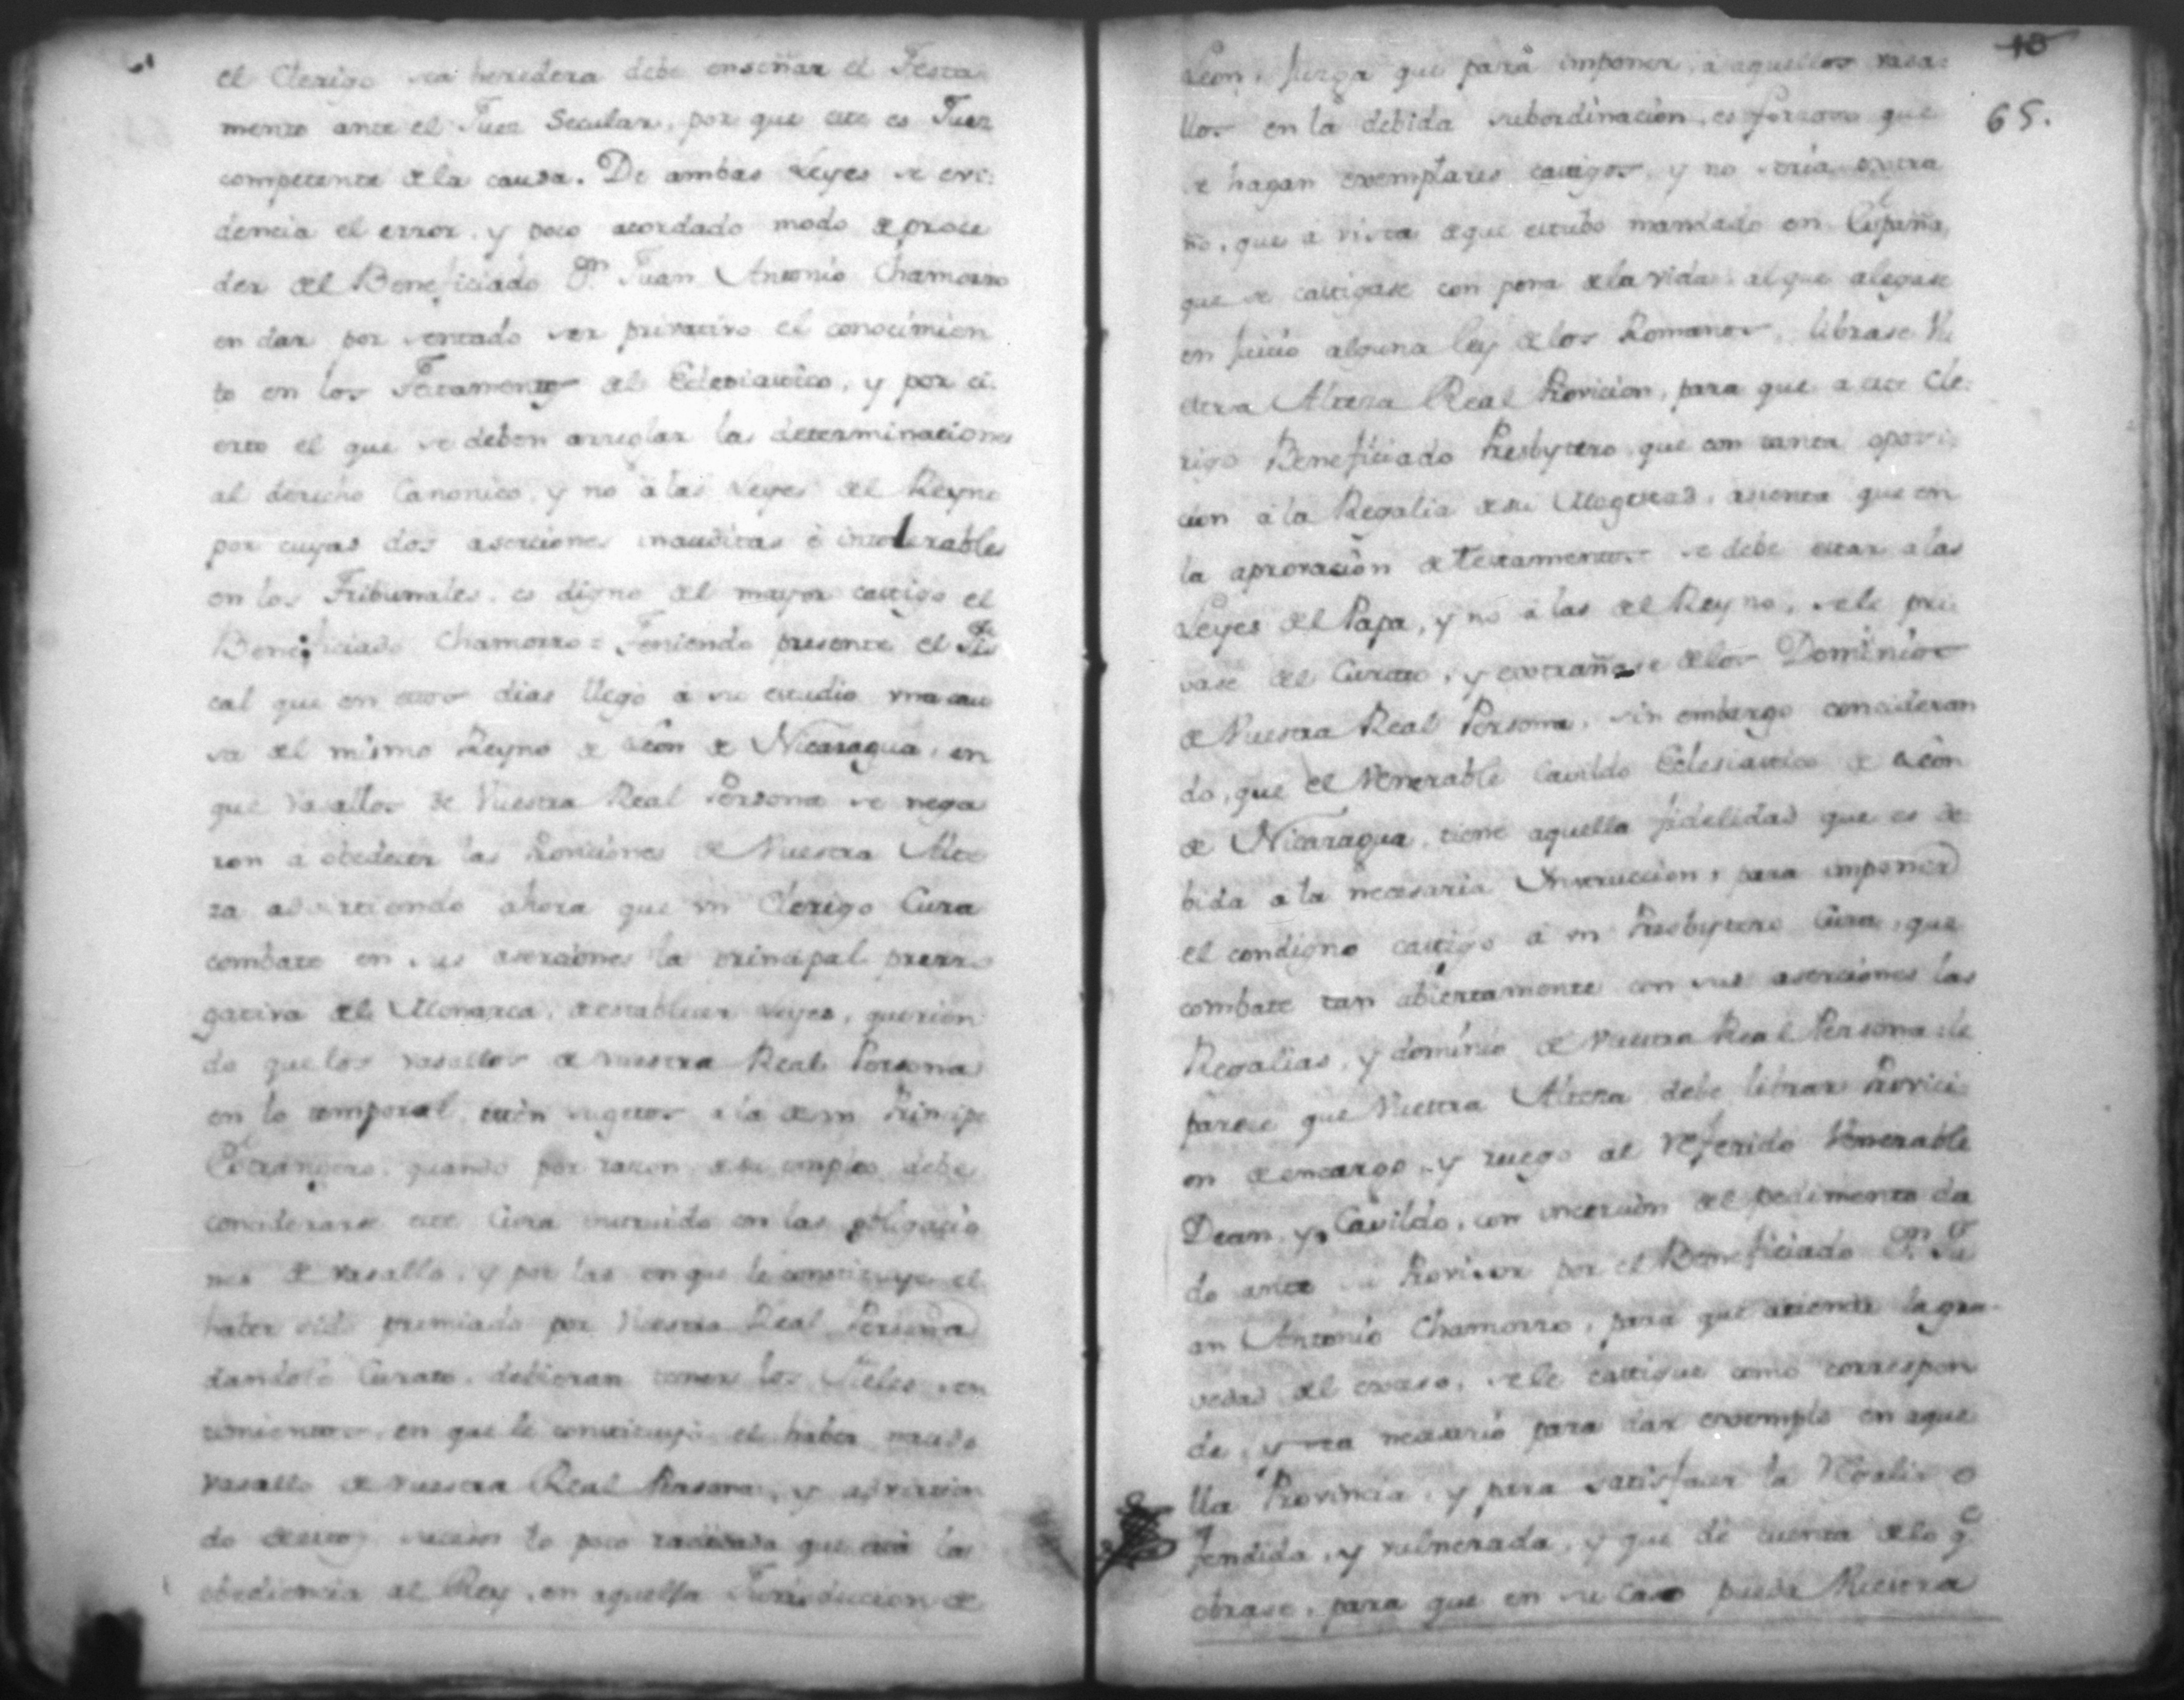 el Clerigo sea heredera debe enseñar el Testa-
mento ante el Juez Secular, por que este es Juez
competente de la causa. De ambas Leyes se evi-
dencia el error, y poco acordado modo de proce
der del Beneficiado Dn. Juan Antonio Chamorro
en dar por sentado ser privativo el conocimien
to en los Testamentos del Eclesiastico, y por ci-
erto el que se deben arreglar las determinaciones
al derecho Canonico, y no a las Leyes del Reyno
por cuyas dos aserciones inauditas è intolerables
en los Tribunales, es digno del mayor castigo el
Beneficiado Chamorro = Teniendo presente el Fis
cal que en estos dias llegó à su estudio una cau
sa del mismo Reyno de Leon de Nicaragua, en
que Vasallos de Vuestra Real Persona se nega
ron a obedecer las Provisiones de Vuestra Alte
za advirtiendo ahora que un Clerigo Cura
combate en sus aserciones la principal prerro
gativa del Monarca, de establecer Leyes, querien
do que los vasallos de Vuestra Real Persona
en lo temporal estèn sugetos a la de un Principe
Estrangero, quando por razon de su empleo debe
considerarse este Cura instruido en las obligacio
nes de vasallo, y por las en que le constituye el
haber sido premiado por Vuestra Real Persona
dandole Curato, debieran tener los fieles sen
timientos, en que le constituyó el haber nacido
Vasallo de Vuestra Real Persona, y advirtien
do de estos sucesos lo poco radicada que està la
obediencia al Rey, en aquella Jurisdiccion de
10
65.
Leon, juzga que para imponer, a aquellos vasa-
llos en la debida subordinacion, es forzoso que
se hagan exemplares castigos, y no seria extra
ño, que a vista de que estubo mandado en España,
que se castigase con pena de la vida, al que alegase
en juicio alguna ley de los Romanos, librase Vu
estra Alteza Real Provicion, para que a este Cle-
rigo Beneficiado Presbytero, que con tanta oposi-
cion à la Regalia de su Magestad, asienta que en
la aprovaciòn de testamentos se debe estar a las
Leyes del Papa, y no à las del Reyno, se le pri
vase del Curato, y extrañase de los Dominios
de Vuestra Real Persona, sin embargo consideran
do, que el Venerable Cavildo Eclesiastico de Leon
de Nicaragua, tiene aquella fidelidad que es de
bida a la necesaria Instruccion, para imponer
el condigno castigo à un Presbytero Cura, que
combate tan abiertamente con sus aserciones las
Regalias, y dominio de Vuestra Real Persona, le
parece que Vuestra Alteza debe librar Provici
on de encargo, y ruego al referido Venerable
Dean, y Cavildo, con insercion del pedimento da
do ante su Provisor por el Beneficiado Dn. Ju
an Antonio Chamorro, para que atienda la gra-
vedad del exceso, se le castigue como correspon
de, y sea necesario para dar exemplo en aque
lla Provincia, y para satisfacer la Regalia o
fendida, y vulnerada, y que de cuenta de lo qe.
obrase, para que en su caso pueda Vuestra